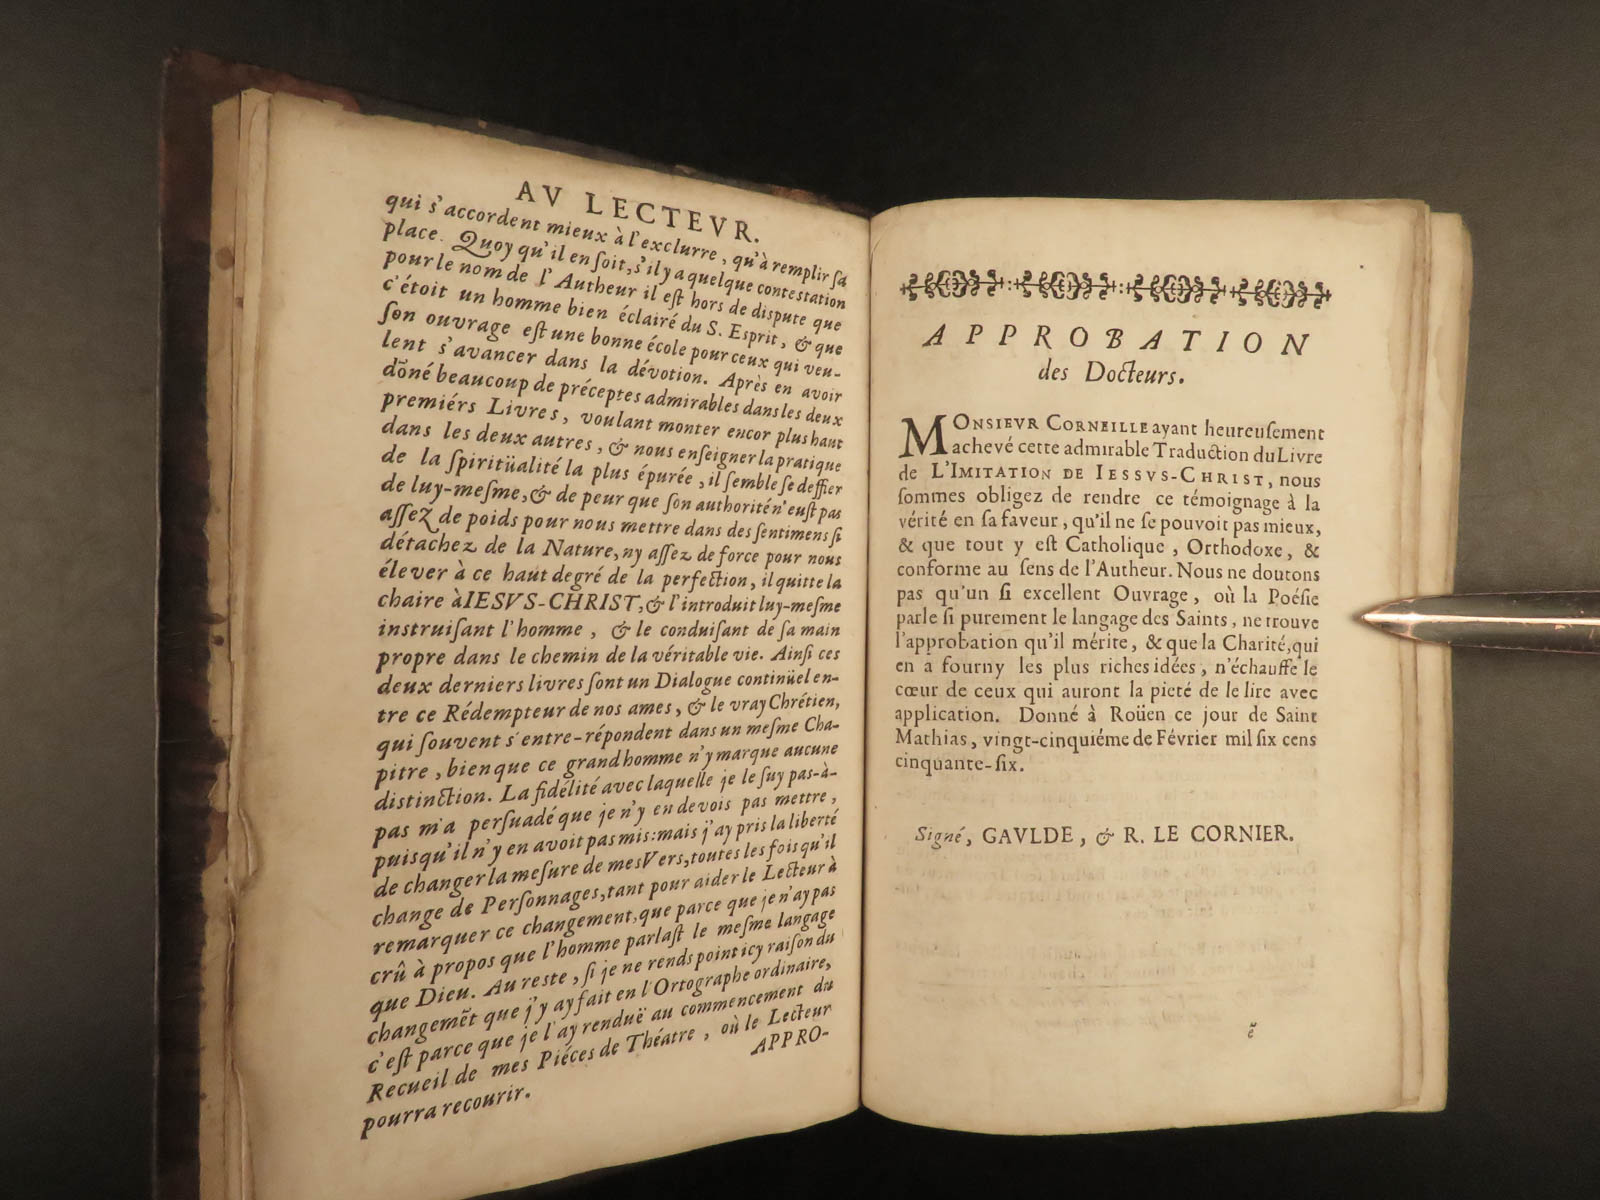 AV LECTEVR.
qui s'accordent mieux à l'exclurre, qu'à remplir sa
place. Quoy qu'il en soit, s'il y a quelque contestation
pour le nom de l'Autheur il est hors de dispute que
c'étoit un homme bien éclairé du S. Esprit, & que
son ouvrage est une bonne école pour ceux qui veu-
lent s'avancer dans la dévotion. Après en avoir
dõné beaucoup de préceptes admirables dans les deux
premiérs Livres, voulant monter encor plus haut
dans les deux autres, & nous enseigner la pratique
de la spiritüalité la plus épurée, il semble se deffier
de luy-mesme, & de peur que son authorité n'eust pas
assez de poids pour nous mettre dans des sentimens si
détachez de la Nature, ny assez de force pour nous
élever à ce haut degré de la perfection, il quitte la
chaire à IESVS-CHRIST, & l'introduit luy-mesme
instruisant l'homme, & le conduisant de sa main
propre dans le chemin de la véritable vie. Ainsi ces
deux derniers livres sont un Dialogue continüel en-
tre ce Rédempteur de nos ames, & le vray Chrétien,
qui souvent s'entre-répondent dans un mesme Cha-
pitre, bien que ce grand homme n'y marque aucune
distinction. La fidélité avec laquelle je le suy pas-à-
pas m'a persuadé que je n'y en devois pas mettre,
puisqu'il n'y en avoit pas mis: mais j'ay pris la liberté
de changer la mesure de mes Vers, toutes les fois qu'il
change de Personnages, tant pour aider le Lecteur à
remarquer ce changement, que parce que je n'ay pas
crû à propos que l'homme parlast le mesme langage
que Dieu. Au reste, si je ne rends point icy raison du
changemẽt que j'y ay fait en l'Ortographe ordinaire,
c'est parce que je l'ay renduë au commencement du
Recueil de mes Piéces de Théatre, où le Lecteur
pourra recourir.
APPRO-
APPROBATION
des Docteurs.
MONSIEVR CORNEILLE ayant heureusement
achevé cette admirable Traduction du Livre
de L'IMITATION DE IESSVS-CHRIST, nous
sommes obligez de rendre ce témoignage à la
vérité en sa faveur, qu'il ne se pouvoit pas mieux,
& que tout y est Catholique, Orthodoxe, &
conforme au sens de l'Autheur. Nous ne doutons
pas qu'un si excellent Ouvrage, où la Poésie
parle si purement le langage des Saints, ne trouve
l'approbation qu'il mérite, & que la Charité, qui
en a fourny les plus riches idées, n'échauffe le
cœur de ceux qui auront la pieté de le lire avec
application. Donné à Roüen ce jour de Saint
Mathias, vingt-cinquiéme de Février mil six cens
cinquante-six.
Signé, GAVLDE, & R. LE CORNIER.
ẽ